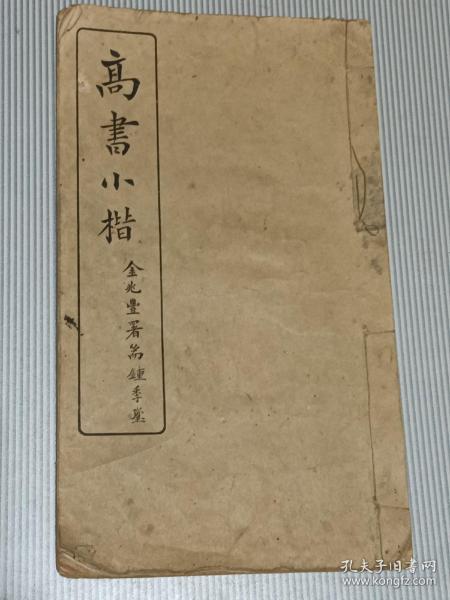 高書小楷
金兆豐署耑
鍾季
孔夫子旧书网
www.kongfz.com